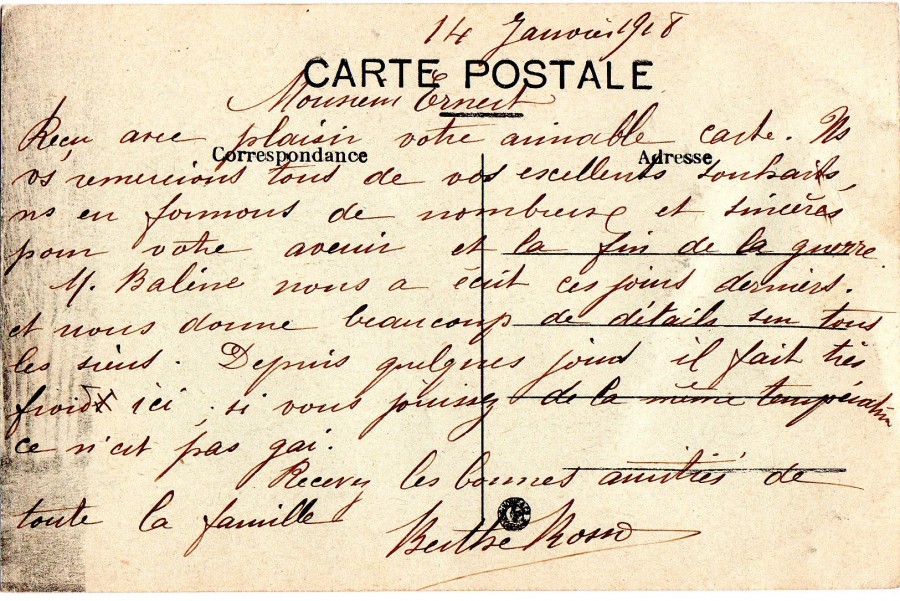 14 Janvier 1918
CARTE POSTALE
Monsieur Ernest
Reçu avec plaisir votre aimable carte. Ns
Correspondance
Adresse
vs remercions tous de vos excellents souhaits,
ns en formons de nombreux et sincères
pour votre avenir et la fin de la guerre.
M. Balène nous a écrit ces jours derniers.
et nous donne beaucoup de détails sur tous
les siens. Depuis quelques jours il fait très
froid ici, si vous jouissez de la même température
ce n'est pas gai.
Recevez les bonnes amitiés de
toute la famille
Berthe